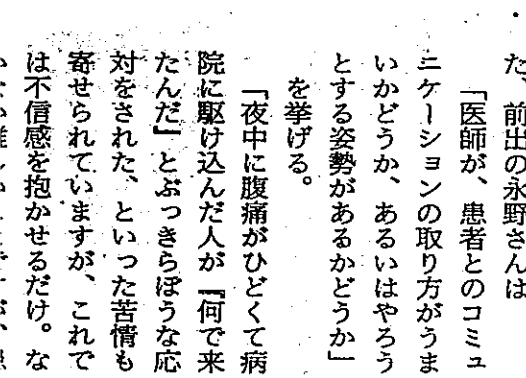 た、前出の永野さんは
「医師が、患者とのコミュ
ニケーションの取り方がうま
いかどうか、あるいはやろう
とする姿勢があるかどうか」
を挙げる。
「夜中に腹痛がひどくて病
院に駆け込んだ人が『何で来
たんだ』とぶっきらぼうな応
対をされた、といった苦情も
寄せられていますが、これで
は不信感を抱かせるだけ。な